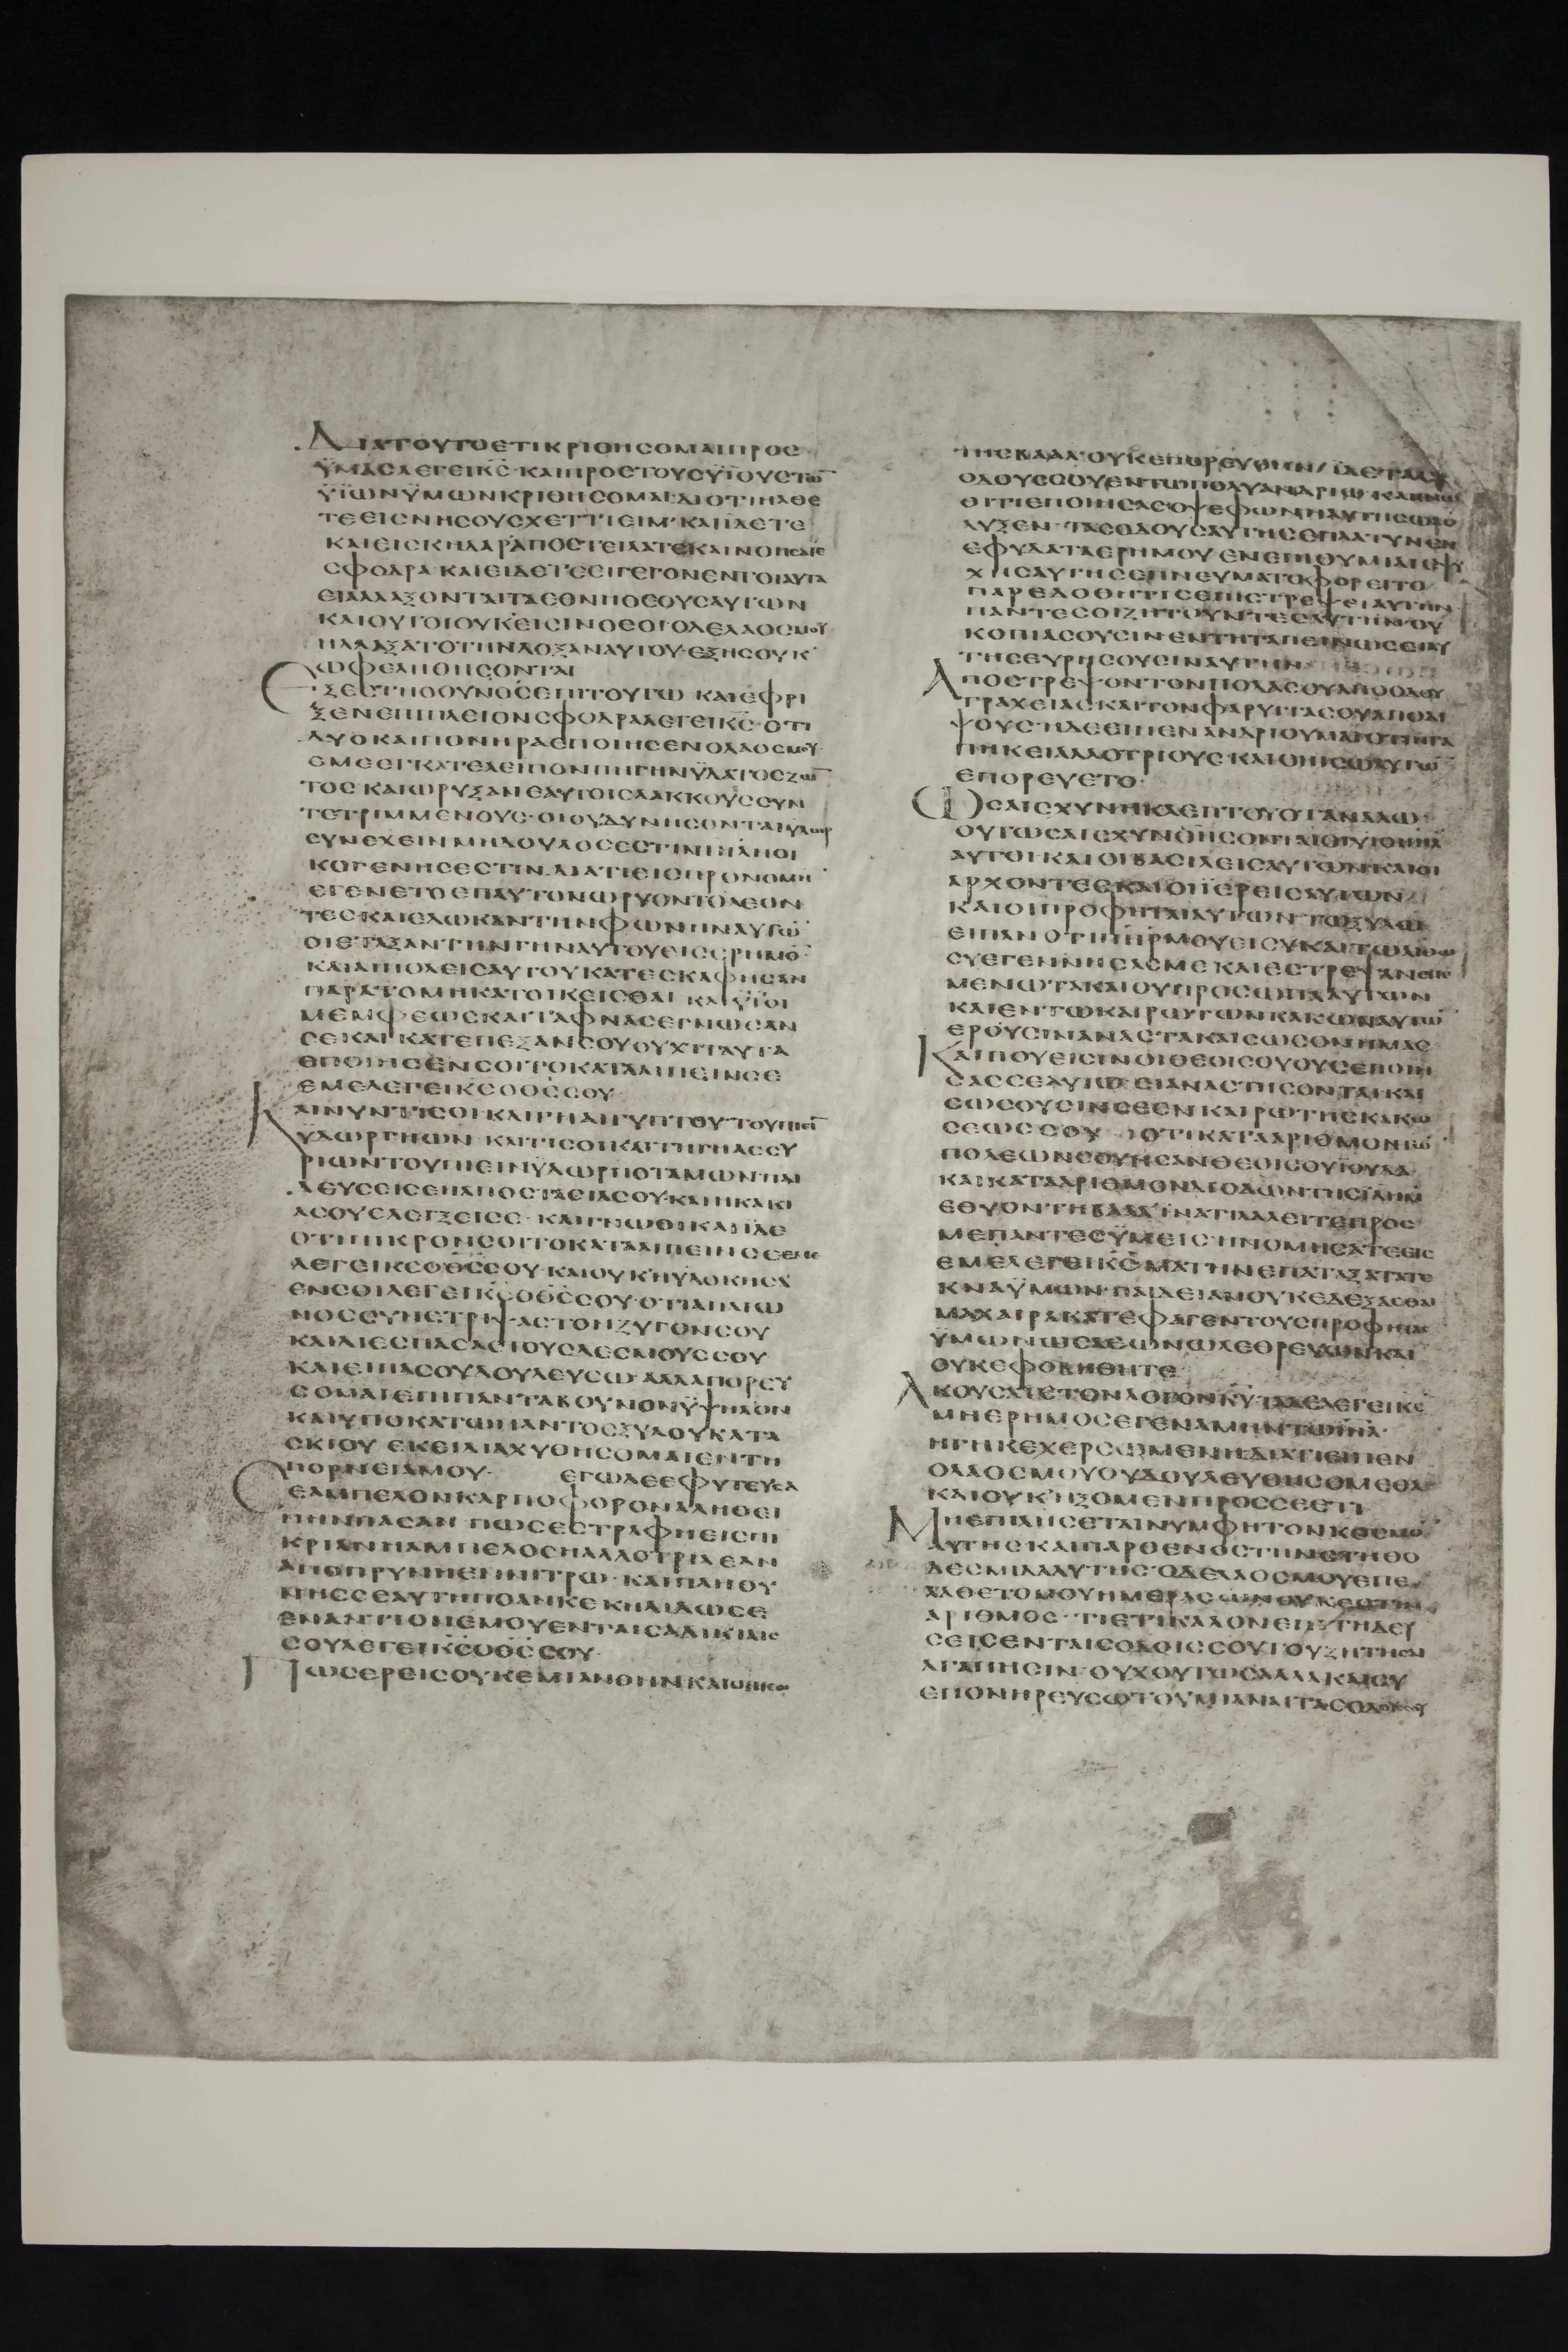 ΔΙΑΤΟΥΤΟΕΤΙΚΡΙΘΗΣΟΜΑΙΠΡΟΣ
ΫΜΑΣΛΕΓΕΙΚ̅Σ̅·ΚΑΙΠΡΟΣΤΟΥΣΥΪΟΥΣΤΩ̅
ΫΪΩΝΫΜΩΝΚΡΙΘΗΣΟΜΑΙ·ΔΙΟΤΙΔΙΕΛΘΕ
ΤΕΕΙΣΝΗΣΟΥΣΧΕΤΤΙΕΙΜ·ΚΑΙΙΔΕΤΕ
ΚΑΙΕΙΣΚΗΔΑΡΑΠΟΣΤΕΙΛΑΤΕΚΑΙΝΟΗΣΑΤΕ
ΣΦΟΔΡΑ·ΚΑΙΕΙΔΕΤΕΕΙΓΕΓΟΝΕΝΤΟΙΑΥΤΑ
ΕΙΑΛΛΑΞΟΝΤΑΙΤΑΕΘΝΗΘΕΟΥΣΑΥΤΩΝ
ΚΑΙΟΥΤΟΙΟΥΚΕΙΣΙΝΘΕΟΙ·ΟΔΕΛΑΟΣΜΟΥ
ΗΛΛΑΞΑΤΟΤΗΝΔΟΞΑΝΑΥΤΟΥ·ΕΞΗΣΟΥΚ
ΩΦΕΛΗΘΗΣΟΝΤΑΙ
ΕΞΕΣΤΗΟΟΥΝΟΣΕΠΙΤΟΥΤΩ·ΚΑΙΕΦΡΙ
ΞΕΝΕΠΙΠΛΕΙΟΝΣΦΟΔΡΑΛΕΓΕΙΚ̅Σ̅·ΟΤΙ
ΔΥΟΚΑΙΠΟΝΗΡΑΕΠΟΙΗΣΕΝΟΛΑΟΣΜΟΥ·
ΕΜΕΕΓΚΑΤΕΛΕΙΠΟΝΠΗΓΗΝΫΔΑΤΟΣΖΩ̅
ΤΟΣΚΑΙΩΡΥΞΑΝΕΑΥΤΟΙΣΛΑΚΚΟΥΣΣΥΝ
ΤΕΤΡΙΜΜΕΝΟΥΣ·ΟΙΟΥΔΥΝΗΣΟΝΤΑΙΫΔΩΡ
ΣΥΝΕΧΕΙΝΜΗΔΟΥΛΟΣΕΣΤΙΝΙ̅Η̅Λ̅ΗΟΙ
ΚΟΓΕΝΗΣΕΣΤΙΝ·ΔΙΑΤΙΕΙΣΠΡΟΝΟΜΗ̅
ΕΓΕΝΕΤΟΕΠΑΥΤΟΝΩΡΥΟΝΤΟΛΕΟΝ
ΤΕΣ·ΚΑΙΕΔΩΚΑΝΤΗΝΦΩΝΗΝΑΥΤΩ̅
ΟΙΕΤΑΞΑΝΤΗΝΓΗΝΑΥΤΟΥΕΙΣΕΡΗΜΟ̅
ΚΑΙΑΙΠΟΛΕΙΣΑΥΤΟΥΚΑΤΕΣΚΑΦΗΣΑΝ
ΠΑΡΑΤΟΜΗΚΑΤΟΙΚΕΙΣΘΑΙ·ΚΑΙΫΪΟΙ
ΜΕΜΦΕΩΣΚΑΙΤΑΦΝΑΣΕΓΝΩΣΑΝ
ΣΕΚΑΙΚΑΤΕΠΕΞΑΝΣΟΥ·ΟΥΧΙΤΑΥΤΑ
ΕΠΟΙΗΣΕΝΣΟΙΤΟΚΑΤΑΛΙΠΕΙΝΣΕ
ΕΜΕΛΕΓΕΙΚ̅Σ̅ΟΘ̅Σ̅ΣΟΥ
ΚΑΙΝΥΝΤΙΣΟΙΚΑΙΓΗΑΙΓΥΠΤΟΥ·ΤΟΥΠΙΕΙ̅
ΫΔΩΡΓΗΩΝ·ΚΑΙΤΙΣΟΙΚΑΙΤΗΓΗΑΣΣΥ
ΡΙΩΝΤΟΥΠΙΕΙΝΫΔΩΡΠΟΤΑΜΩΝΠΑΙ
ΔΕΥΣΕΙΣΕΗΑΠΟΣΤΑΣΙΑΣΟΥ·ΚΑΙΗΚΑΚΙ
ΑΣΟΥΕΛΕΓΞΕΙΣΕ·ΚΑΙΓΝΩΘΙΚΑΙΪΔΕ
ΟΤΙΠΙΚΡΟΝΣΟΙΤΟΚΑΤΑΛΙΠΕΙΝΣΕΕΜΕ
ΛΕΓΕΙΚ̅Σ̅ΟΘ̅Σ̅ΣΟΥ·ΚΑΙΟΥΚΗΥΔΟΚΗΣΑ
ΕΝΣΟΙΛΕΓΕΙΚ̅Σ̅ΟΘ̅Σ̅ΣΟΥ·ΟΤΙΑΠΑΙΩ
ΝΟΣΣΥΝΕΤΡΙΨΑΣΤΟΝΖΥΓΟΝΣΟΥ
ΚΑΙΔΙΕΣΠΑΣΑΣΤΟΥΣΔΕΣΜΟΥΣΣΟΥ
ΚΑΙΕΙΠΑΣΟΥΔΟΥΛΕΥΣΩ·ΑΛΛΑΠΟΡΕΥ
ΣΟΜΑΙΕΠΙΠΑΝΤΑΒΟΥΝΟΝΫΨΗΛΟΝ
ΚΑΙΥΠΟΚΑΤΩΠΑΝΤΟΣΞΥΛΟΥΚΑΤΑ
ΣΚΙΟΥ·ΕΚΕΙΔΙΑΧΥΘΗΣΟΜΑΙΕΝΤΗ
ΠΟΡΝΕΙΑΜΟΥ· ΕΓΩΔΕΕΦΥΤΕΥΣΑ
ΣΕΑΜΠΕΛΟΝΚΑΡΠΟΦΟΡΟΝΑΛΗΘΕΙ
ΝΗΝΠΑΣΑΝ·ΠΩΣΕΣΤΡΑΦΗΕΙΣΠΙ
ΚΡΙΑΝΗΑΜΠΕΛΟΣΗΑΛΛΟΤΡΙΑ·ΕΑΝ
ΑΠΟΠΛΥΝΗΕΝΝΙΤΡΩ·ΚΑΙΠΛΗΘΥ
ΝΗΣΣΕΑΥΤΗΠΟΛΙΝΚΕΚΗΛΙΔΩΣΕ
ΕΝΑΝΤΙΟΝΕΜΟΥΕΝΤΑΙΣΑΔΙΚΙΑΙΣ
ΣΟΥΛΕΓΕΙΚ̅Σ̅ΟΘ̅Σ̅ΣΟΥ·
ΠΩΣΕΡΕΙΣΟΥΚΕΜΙΑΝΘΗΝΚΑΙΟΠΙΣΩ
ΤΗΣΒΑΑΛ·ΟΥΚΕΠΟΡΕΥΘΗΝ
ΟΔΟΥΣΣΟΥΕΝΤΩΠΟΛΥΑΝΔΡΙΩ·ΚΑΙΓΝΩΘΙ
ΟΤΙΕΠΟΙΗΣΑΣΟΨΕΦΩΝΗΑΥΤΗΣΩΛΟ
ΛΥΞΕΝ·ΤΑΣΟΔΟΥΣΑΥΤΗΣΕΠΛΑΤΥΝΕΝ
ΕΦΥΔΑΤΑΕΡΗΜΟΥ·ΕΝΕΠΙΘΥΜΙΑΙΣΨΥ
ΧΗΣΑΥΤΗΣΕΠΝΕΥΜΑΤΟΦΟΡΕΙΤΟ
ΠΑΡΕΔΟΘΗΤΙΣΕΠΙΣΤΡΕΨΕΙΑΥΤΗΝ
ΠΑΝΤΕΣΟΙΖΗΤΟΥΝΤΕΣΑΥΤΗΝ·ΟΥ
ΚΟΠΙΑΣΟΥΣΙΝ·ΕΝΤΗΤΑΠΕΙΝΩΣΕΙΑΥ
ΤΗΣΕΥΡΗΣΟΥΣΙΝΑΥΤΗΝ
ΑΠΟΣΤΡΕΨΟΝΤΟΝΠΟΔΑΣΟΥΑΠΟΟΔΟΥ
ΤΡΑΧΕΙΑΣΚΑΙΤΟΝΦΑΡΥΓΓΑΣΟΥΑΠΟΔΙ
ΨΟΥΣ·ΗΔΕΕΙΠΕΝΑΝΔΡΙΟΥΜΑΙΟΤΙΗΓΑ
ΠΗΚΕΙΑΛΛΟΤΡΙΟΥΣΚΑΙΟΠΙΣΩΑΥΤΩ̅
ΕΠΟΡΕΥΕΤΟ·
ΩΣΑΙΣΧΥΝΗΚΛΕΠΤΟΥΟΤΑΝΑΛΩ
ΟΥΤΩΣΑΙΣΧΥΝΘΗΣΟΝΤΑΙΟΙΥΙΟΙΙ̅Η̅Λ̅
ΑΥΤΟΙΚΑΙΟΙΒΑΣΙΛΕΙΣΑΥΤΩΝΚΑΙΟΙ
ΑΡΧΟΝΤΕΣΚΑΙΟΙΪΕΡΕΙΣΑΥΤΩΝ
ΚΑΙΟΙΠΡΟΦΗΤΑΙΑΥΤΩΝ·ΤΩΞΥΛΩ
ΕΙΠΑΝΟΤΙΠ̅Η̅Ρ̅ΜΟΥΕΙΣΥ·ΚΑΙΤΩΛΙΘΩ
ΣΥΕΓΕΝΝΗΣΑΣΜΕ·ΚΑΙΕΣΤΡΕΨΑΝΕΠΕ
ΜΕΝΩΤΑΚΑΙΟΥΠΡΟΣΩΠΑΑΥΤΩΝ
ΚΑΙΕΝΤΩΚΑΙΡΩΤΩΝΚΑΚΩΝΑΥΤΩ̅
ΕΡΟΥΣΙΝΑΝΑΣΤΑΚΑΙΣΩΣΟΝΗΜΑΣ
ΚΑΙΠΟΥΕΙΣΙΝΟΙΘΕΟΙΣΟΥΟΥΣΕΠΟΙΗ
ΣΑΣΣΕΑΥΤΩ·ΕΙΑΝΑΣΤΗΣΟΝΤΑΙΚΑΙ
ΣΩΣΟΥΣΙΝΣΕΕΝΚΑΙΡΩΤΗΣΚΑΚΩ
ΣΕΩΣΣΟΥ· ΟΤΙΚΑΤΑΑΡΙΘΜΟΝΤΩ̅
ΠΟΛΕΩΝΣΟΥΗΣΑΝΘΕΟΙΣΟΥΪΟΥΔΑ
ΚΑΙΚΑΤΑΑΡΙΘΜΟΝΔΙΟΔΩΝΤΗΣΙ̅Λ̅Η̅Μ̅
ΕΘΥΟΝΤΗΒΑΑΛ·ΪΝΑΤΙΛΑΛΕΙΤΕΠΡΟΣ
ΜΕΠΑΝΤΕΣΫΜΕΙΣΗΝΟΜΗΣΑΤΕΕΙΣ
ΕΜΕΛΕΓΕΙΚ̅Σ̅ΜΑΤΗΝΕΠΑΤΑΞΑΤΑΤΕ
ΚΝΑΫΜΩΝ·ΠΑΙΔΕΙΑΝΟΥΚΕΔΕΞΑΣΘΑΙ
ΜΑΧΑΙΡΑΚΑΤΕΦΑΓΕΝΤΟΥΣΠΡΟΦΗΤΑΣ
ΫΜΩΝΩΣΛΕΩΝΟΛΕΘΡΕΥΩΝΚΑΙ
ΟΥΚΕΦΟΒΗΘΗΤΕ
ΑΚΟΥΣΑΤΕΤΟΝΛΟΓΟΝΚ̅Υ̅·ΤΑΔΕΛΕΓΕΙΚ̅Σ̅
ΜΗΕΡΗΜΟΣΕΓΕΝΑΜΗΝΤΩΙ̅Η̅Λ̅·
ΗΓΗΚΕΧΕΡΣΩΜΕΝΗΔΙΑΤΙΕΙΠΕΝ
ΟΛΑΟΣΜΟΥΟΥΔΟΥΛΕΥΘΗΣΟΜΕΘΑ
ΚΑΙΟΥΚΗΞΟΜΕΝΠΡΟΣΣΕΕΤΙ
ΜΗΕΠΙΛΗΣΕΤΑΙΝΥΜΦΗΤΟΝΚΟΣΜΟ̅
ΑΥΤΗΣΚΑΙΠΑΡΘΕΝΟΣΤΗΝΣΤΗΘΟ
ΔΕΣΜΙΔΑΑΥΤΗΣ·ΟΔΕΛΑΟΣΜΟΥΕΠΕ
ΛΑΘΕΤΟΜΟΥΗΜΕΡΑΣΩΝΟΥΚΕΣΤΙΝ
ΑΡΙΘΜΟΣ·ΤΙΕΤΙΚΑΛΟΝΕΠΙΤΗΔΕΥ
ΣΕΙΣΕΝΤΑΙΣΟΔΟΙΣΣΟΥΤΟΥΖΗΤΗΣΑΙ
ΑΓΑΠΗΣΙΝ·ΟΥΧΟΥΤΩΣΑΛΛΑΚΑΙΣΥ
ΕΠΟΝΗΡΕΥΣΩΤΟΥΜΙΑΝΑΙΤΑΣΟΔΟΥΣΣΟΥ